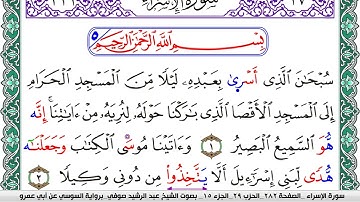 سُورَةُ الْإِسْرَاءِ
بِسْمِ اللَّهِ الرَّحْمَٰنِ الرَّحِيمِ
سُبْحَانَ الَّذِي أَسْرَىٰ بِعَبْدِهِ لَيْلًا مِنَ الْمَسْجِدِ الْحَرَامِ
إِلَى الْمَسْجِدِ الْأَقْصَا الَّذِي بَارَكْنَا حَوْلَهُ لِنُرِيَهُ مِنْ ءَايَاتِنَا إِنَّه
هُّوَ السَّمِيعُ الْبَصِيرُ ١ وَءَاتَيْنَا مُوسَى الْكِتَابَ وَجَعَلْنَاه
هُّدًى لِبَنِي إِسْرَاءِيلَ أَلَّا يَتَّخِذُوا مِنْ دُونِي وَكِيلًا ٢
سورة الإسراء _ الصفحة ٢٨٢ _ الحزب ٢٩ _ الجزء ١٥ _ بصوت الشيخ عبد الرشيد صوفي _ برواية السوسي عن أبي عمرو